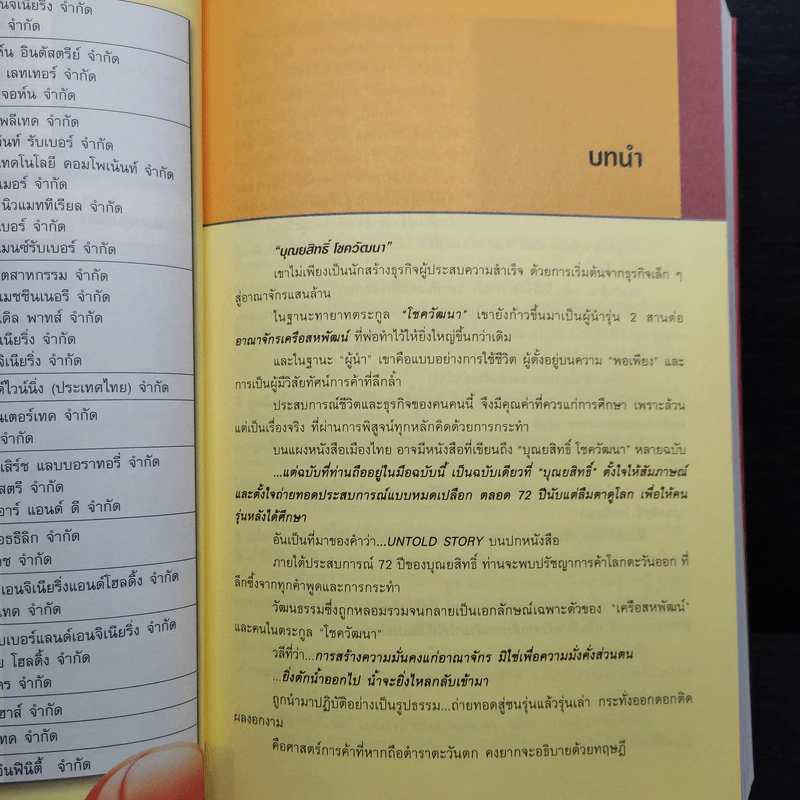 นจิเนียริ่ง จำกัด
จำกัด
ท์น อินดัสตรีย์ จำกัด
เลทเทอร์ จำกัด
จอห์น จำกัด
พลีเทค จำกัด
รับเบอร์ จำกัด
เทคโนโลยี คอมโพเน้นท์ จำกัด
เมอร์ จำกัด
นิวแมททีเรียล จำกัด
เบอร์ จำกัด
แมนซ์รับเบอร์ จำกัด
ตสาหกรรม จำกัด
เมชชีนเนอรี จำกัด
เคิล พาทส์ จำกัด
เนียริ่ง จำกัด
จิเนียริ่ง จำกัด
ด์ไวน์นิ่ง (ประเทศไทย) จำกัด
นเตอร์เทค จำกัด
จำกัด
เสิร์ช แลบบอราทอรี่ จำกัด
สตรี จำกัด
อาร์ แอนด์ ดี จำกัด
อธธีลิก จำกัด
ช จำกัด
เอนจิเนียริ่งแอนด์โฮลดิ้ง จำกัด
เทค จำกัด
บเบอร์แลนด์เอนจิเนียริ่ง จำกัด
โฮลดิ้ง จำกัด
คร จำกัด
ฮาส์ จำกัด
ทค จำกัด
อินฟินิตี้ จำกัด
บทนำ
“บุณยสิทธิ์ โชควัฒนา”
เขาไม่เพียงเป็นนักสร้างธุรกิจผู้ประสบความสำเร็จ ด้วยการเริ่มต้นจากธุรกิจเล็ก ๆ
สู่อาณาจักรแสนล้าน
ในฐานะทายาทตระกูล “โชควัฒนา” เขายังก้าวขึ้นมาเป็นผู้นำรุ่น 2 สานต่อ
อาณาจักรเครือสหพัฒน์ ที่พ่อทำไว้ให้ยิ่งใหญ่ขึ้นกว่าเดิม
และในฐานะ “ผู้นำ” เขาคือแบบอย่างการใช้ชีวิต ผู้ตั้งอยู่บนความ “พอเพียง” และ
การเป็นผู้มีวิสัยทัศน์การค้าที่ลึกล้ำ
ประสบการณ์ชีวิตและธุรกิจของคนคนนี้ จึงมีคุณค่าที่ควรแก่การศึกษา เพราะล้วน
แต่เป็นเรื่องจริง ที่ผ่านการพิสูจน์ทุกหลักคิดด้วยการกระทำ
บนแผงหนังสือเมืองไทย อาจมีหนังสือที่เขียนถึง “บุณยสิทธิ์ โชควัฒนา” หลายฉบับ
...แต่ฉบับที่ท่านถืออยู่ในมือฉบับนี้ เป็นฉบับเดียวที่ “บุณยสิทธิ์” ตั้งใจให้สัมภาษณ์
และตั้งใจถ่ายทอดประสบการณ์แบบหมดเปลือก ตลอด 72 ปีนับแต่ลืมตาดูโลก เพื่อให้คน
รุ่นหลังได้ศึกษา
อันเป็นที่มาของคำว่า...UNTOLD STORY บนปกหนังสือ
ภายใต้ประสบการณ์ 72 ปีของบุณยสิทธิ์ ท่านจะพบปรัชญาการค้าโลกตะวันออก ที่
ลึกซึ้งจากทุกคำพูดและการกระทำ
วัฒนธรรมซึ่งถูกหลอมรวมจนกลายเป็นเอกลักษณ์เฉพาะตัวของ “เครือสหพัฒน์”
และคนในตระกูล “โชควัฒนา”
วลีที่ว่า...การสร้างความมั่นคงแก่อาณาจักร มิใช่เพื่อความมั่งคั่งส่วนตน
...ยิ่งตักน้ำออกไป น้ำจะยิ่งไหลกลับเข้ามา
ถูกนำมาปฏิบัติอย่างเป็นรูปธรรม...ถ่ายทอดสู่ชนรุ่นแล้วรุ่นเล่า กระทั่งออกดอกติด
ผลงอกงาม
คือศาสตร์การค้าที่หากถือตำราตะวันตก คงยากจะอธิบายด้วยทฤษฎี